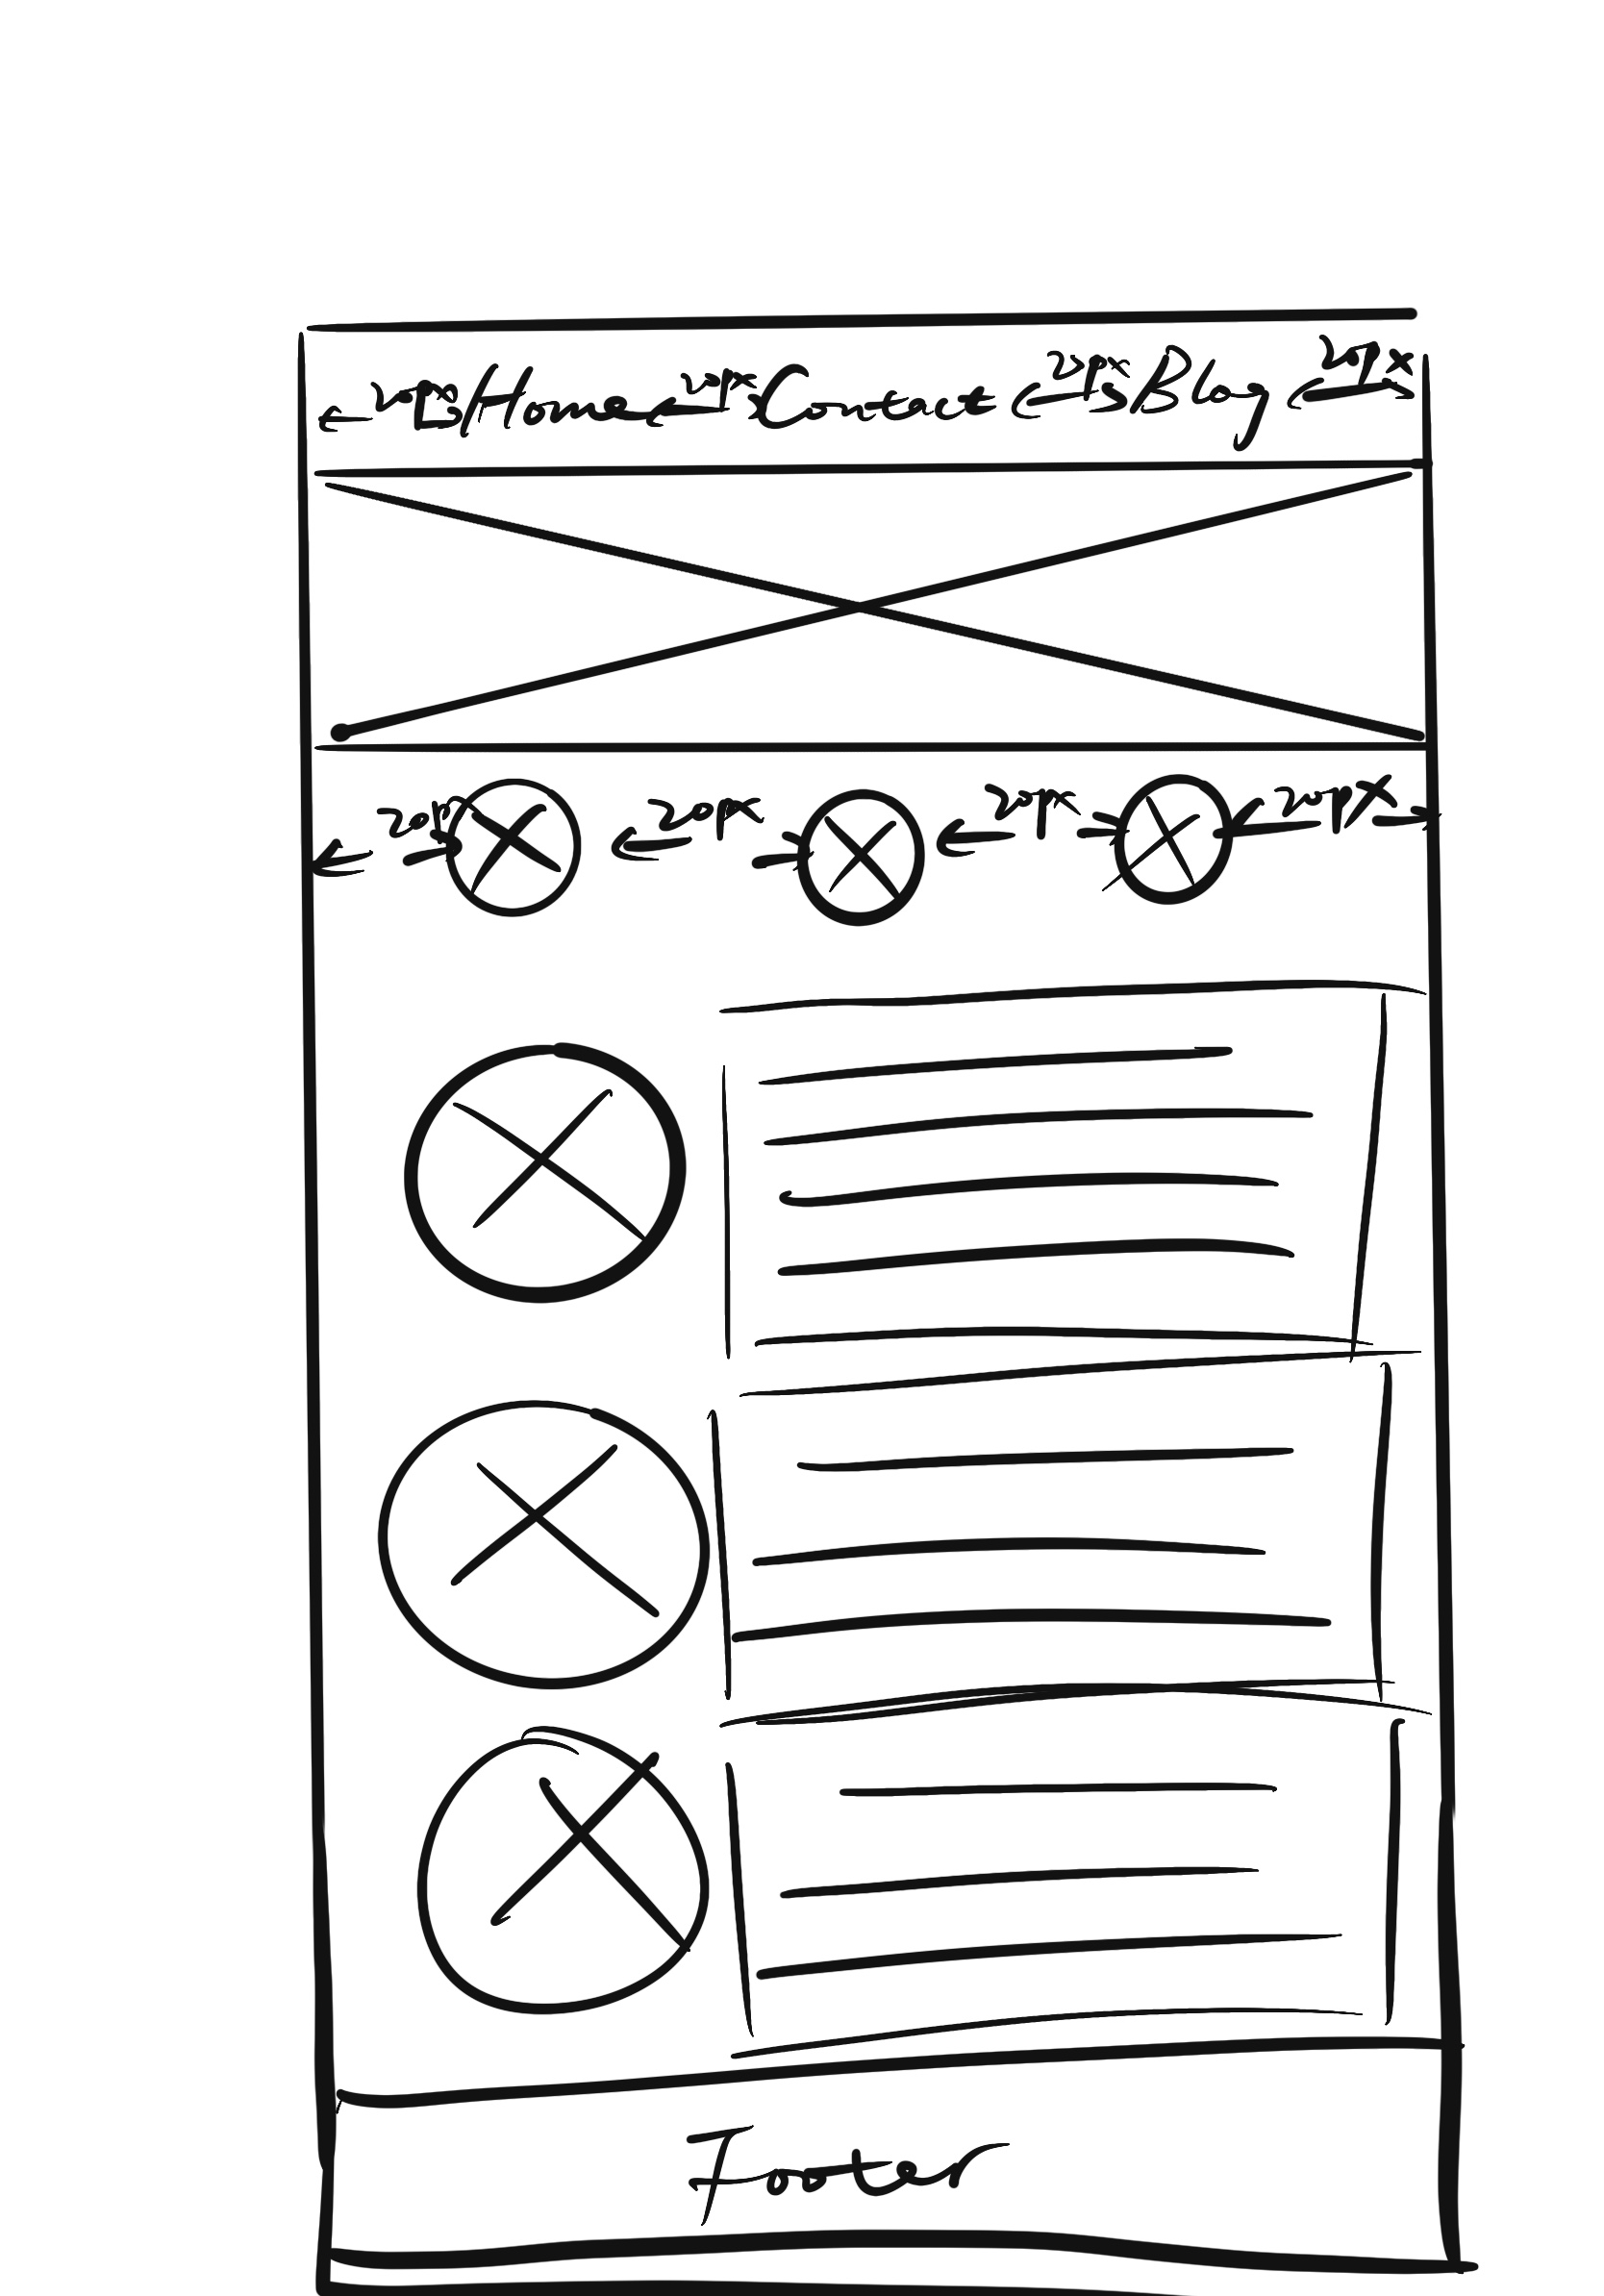 20px Home 20px Contact 20px Blog 20px
20px 20px 20px 20px
Footer